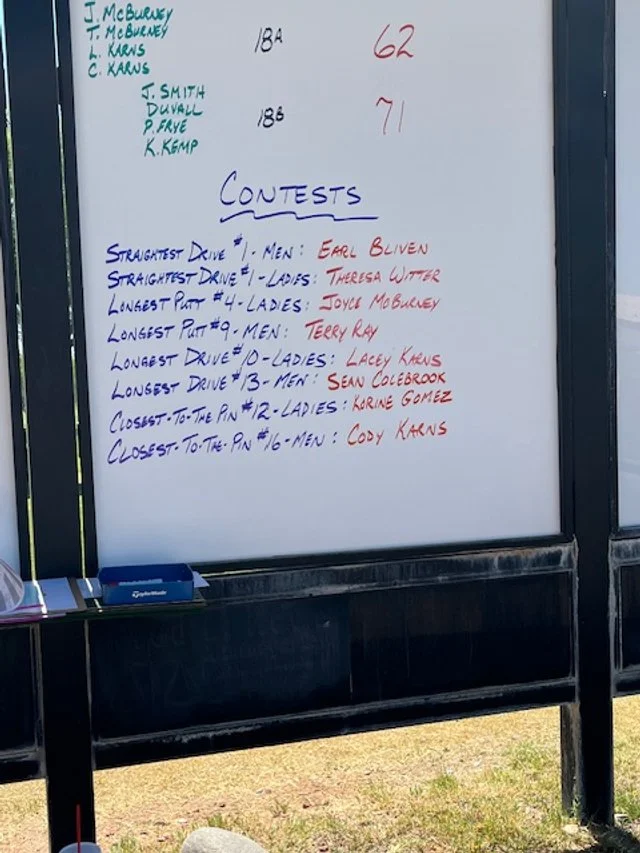 J. McBURNEY
T. McBURNEY
L. KARNS
C. KARNS
18A
62
J. SMITH
DUVALL
P. FRYE
K. KEMP
18B
71
CONTESTS
STRAIGHTEST DRIVE #1 - MEN: EARL BLIVEN
STRAIGHTEST DRIVE #1 - LADIES: THERESA WITTER
LONGEST PUTT #4 - LADIES: JOYCE McBURNEY
LONGEST PUTT #9 - MEN: TERRY RAY
LONGEST DRIVE #10 - LADIES: LACEY KARNS
LONGEST DRIVE #13 - MEN: SEAN COLEBROOK
CLOSEST-TO-THE PIN #12 - LADIES: KORINE GOMEZ
CLOSEST-TO-THE-PIN #16 - MEN: CODY KARNS
TaylorMade